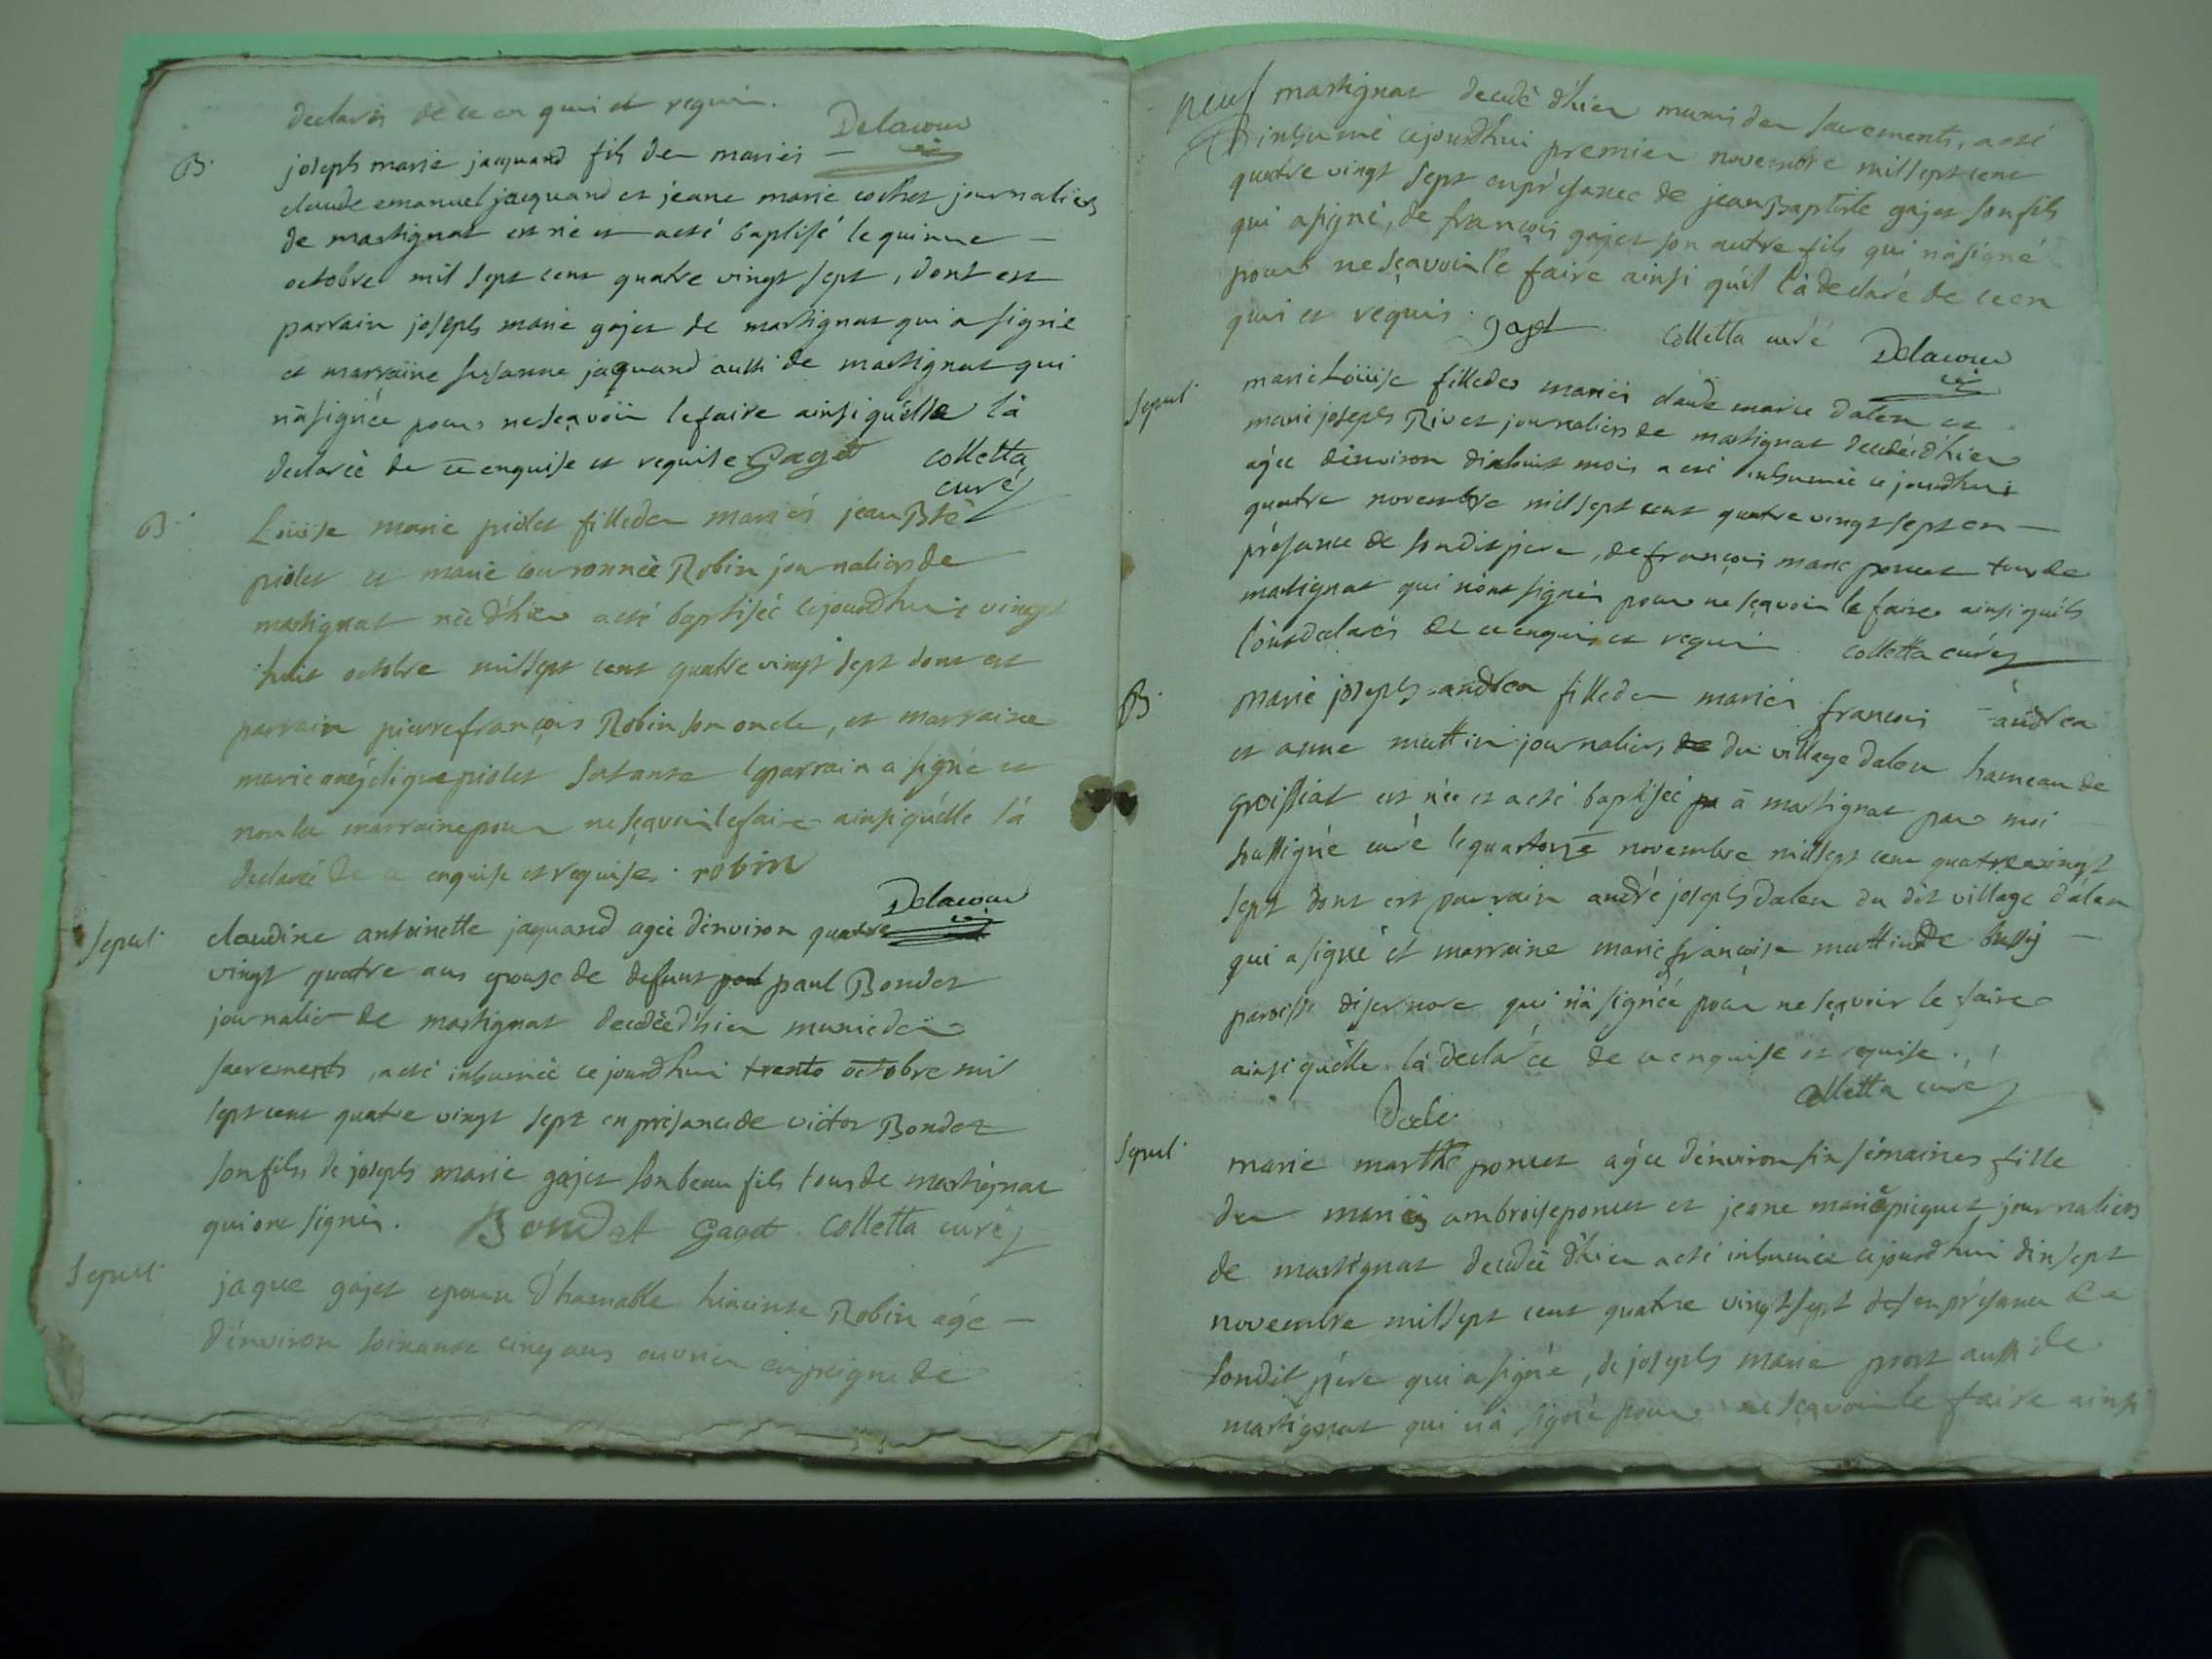 declarés de ce en quis et requis.
Delacour
B.
joseph marie jacquand fils des mariés —
claude emanuel jacquand et jeane marie cochet journaliers
de martignat est né et a eté baptisé le quinze —
octobre mil sept cent quatre vingt sept, dont est
parrain joseph marie gajet de martignat qui a signé
et marraine susanne jaquand aussi de martignat qui
n'a signée pour ne sçavoir le faire ainsi quelle la
declarée de ce enquise et requise Gaget colletta
curé
B.
Loüise marie piolet fille des mariés jean Bte
piolet et marie couronnée Robin journaliers de
martignat née d'hier a eté baptisée cejourdhui vingt
huit octobre mil sept cent quatre vingt sept dont est
parrain pierre françois Robin son oncle, et marraine
marie angelique piolet sa tante le parrain a signé et
non la marraine pour ne sçavoir le faire ainsi quelle l'a
declaré de ce enquise et requise. robin
Delacour
Sepul.
claudine antoinette jaquand agée d'environ quatre
vingt quatre ans epouse de defunt paul Bondet
journalier de martignat decedée d'hier munie des
sacrements, a eté inhumée ce jourdhui trente octobre mil
sept cent quatre vingt sept en presance de victor Bondet
son fils, de joseph marie gajet son beau fils tous de martignat
qui ont signés. Bondet Gaget. Colletta curé
Sepul.
jaque gajet epoux d'hamable hiacinte Robin agé —
d'environ soixante cinq ans ouvrier en peigne de
neuf
martignat decedé d'hier muni des sacrements, a eté
inhumé cejourdhui premier novembre mil sept cent
quatre vingt sept en présance de jean Baptiste gajet son fils
qui a signé, de françois gajet son autre fils qui n'a signé
pour ne sçavoir le faire ainsi qu'il l'a declaré de ce en
quis et requis. gaget Colletta curé
Delacour
Sepul.
marie Loüise fille des mariés claude marie dalen et
marie joseph Rivet journaliers de martignat decedée d'hier
agée d'environ dixhuit mois a eté inhumée ce jourdhui
quatre novembre mil sept cent quatre vingt sept en —
présance de son dit pere, de françois marie poncet tous de
martignat qui n'ont signés pour ne sçavoir le faire ainsi qu'ils
l'ont declarés de ce enquis et requis. colletta curé
B.
marie joseph andrea fille des mariés françois andrea
et anne muttin journaliers du village dalen hameau de
groissiat est née et a eté baptisée à martignat par moi
soussigné curé le quatorze novembre mil sept cent quatre vingt
sept dont est parrain andré joseph dalen du dit village dalen
qui a signé et marraine marie françoise muttin de bussy —
paroisse disernore qui n'a signée pour ne sçavoir le faire
ainsi quelle l'a declarée de ce enquise et requise.
colletta curé
Sepul.
marie marthe poncet agée d'environ six semaines fille
des mariés ambroise poncet et jeane marie piquet journaliers
de martignat decedée d'hier a eté inhumée cejourdhui dix sept
novembre mil sept cent quatre vingt sept en présance de
son dit père qui a signé, de joseph marie prost aussi de
martignat qui n'a signé pour ne sçavoir le faire ainsi